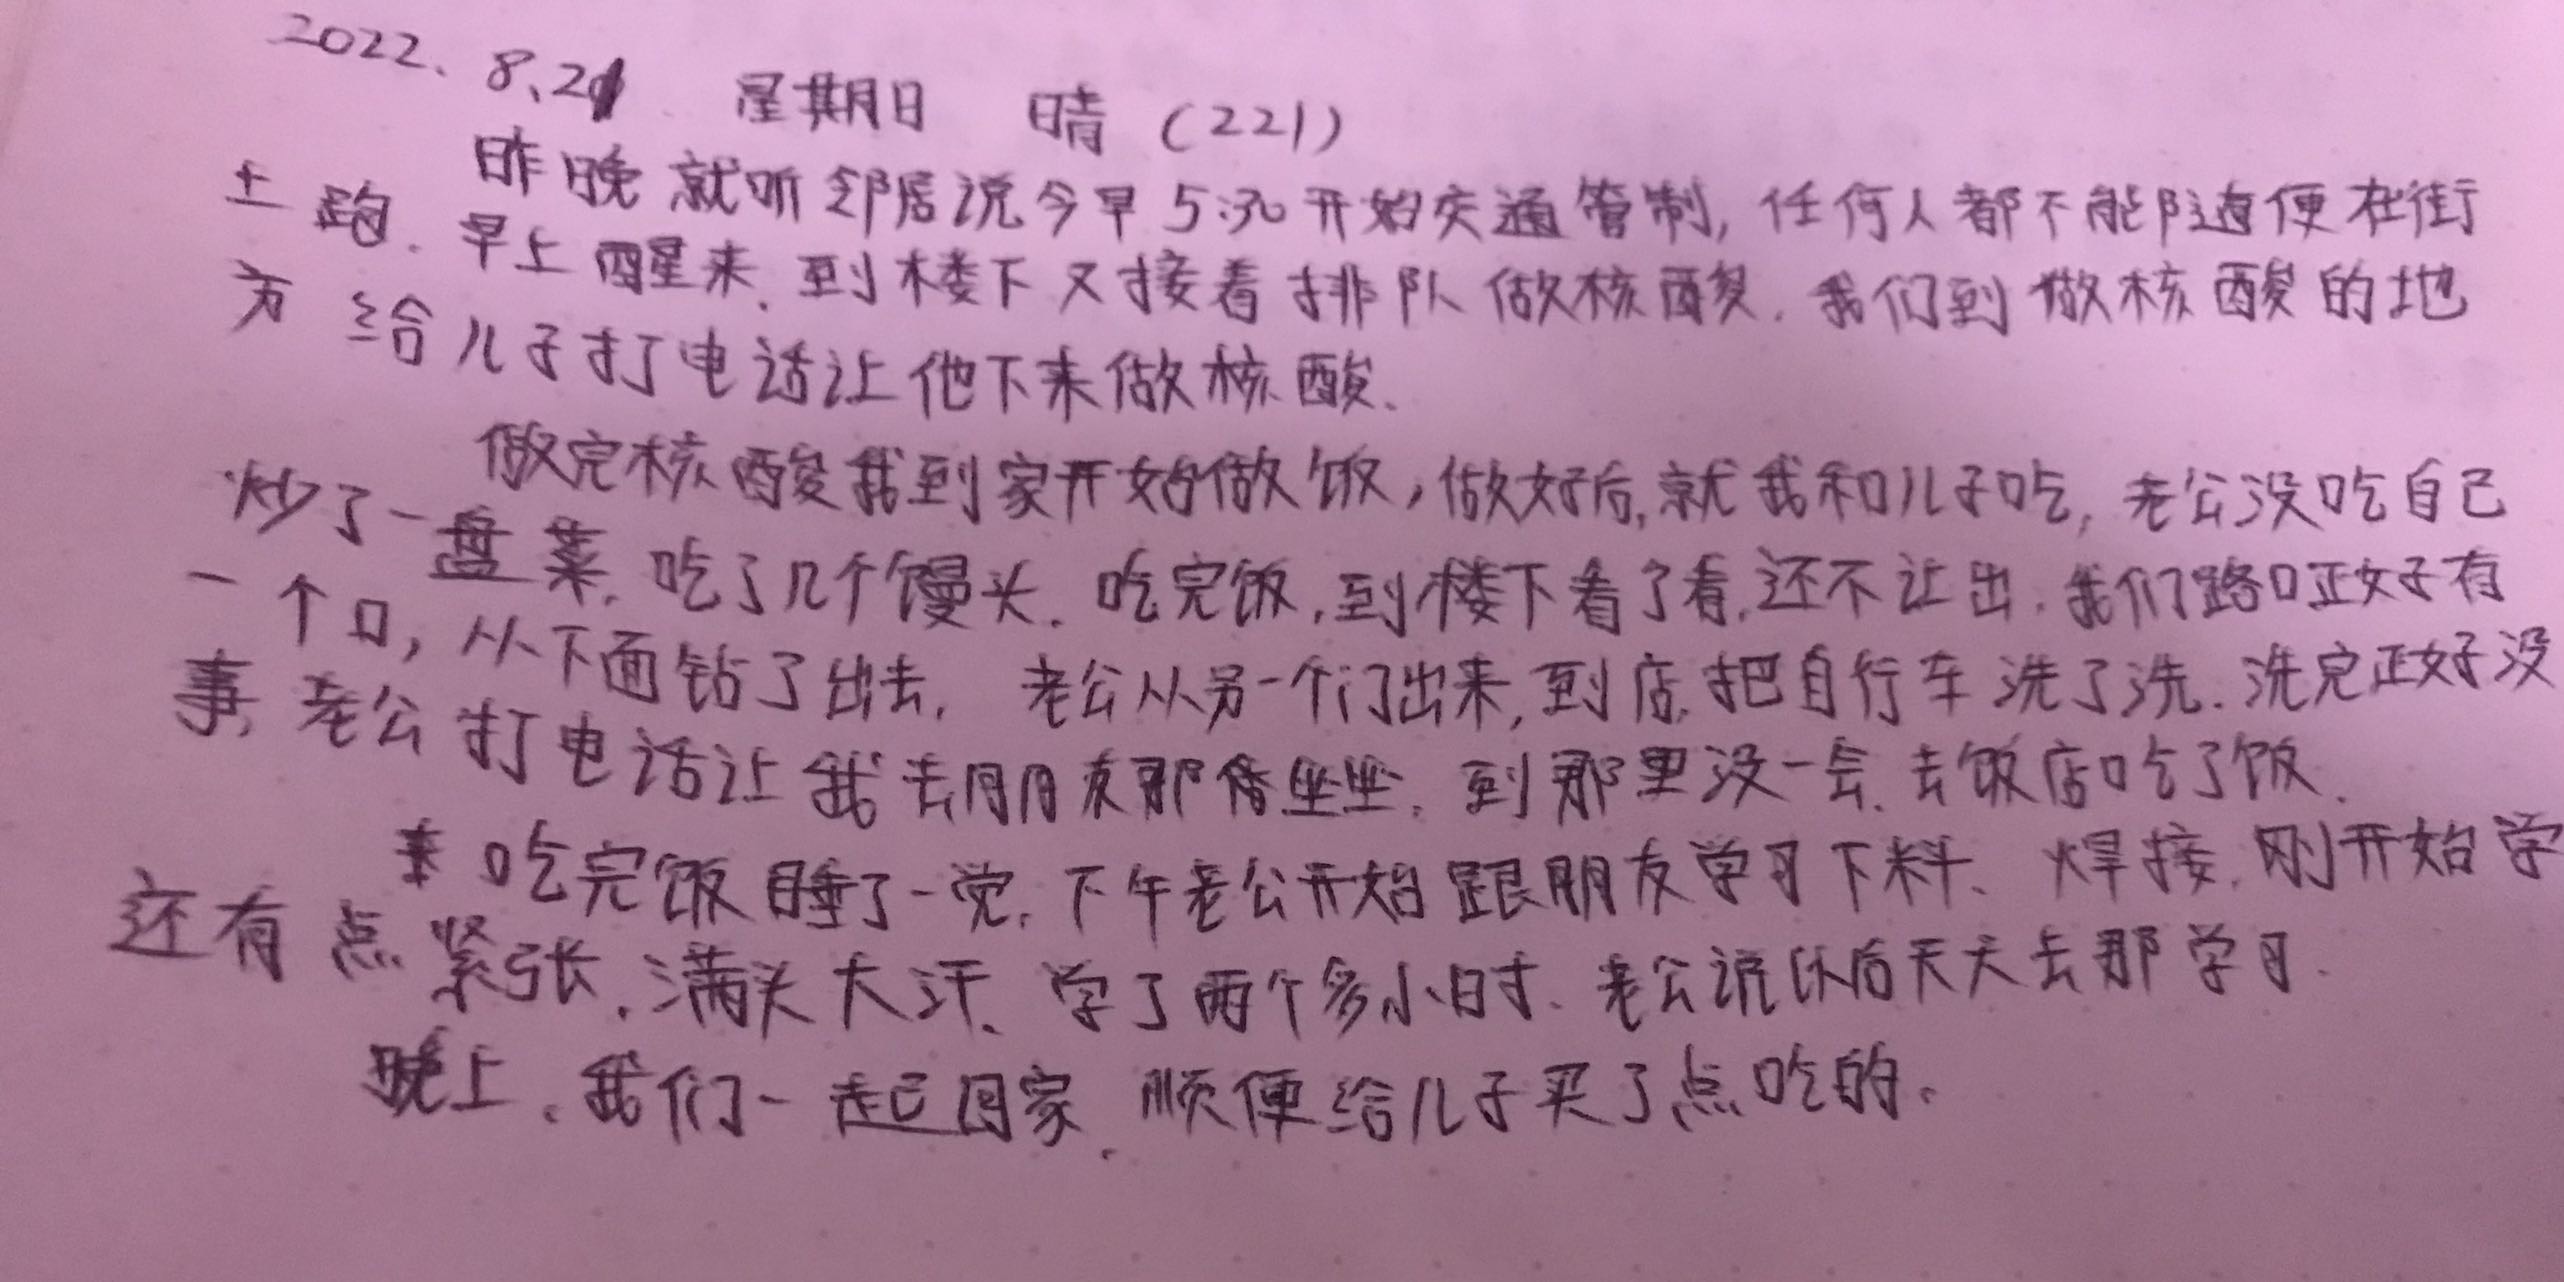 2022、8、21 星期日 晴（221）
昨晚就听邻居说今早5:30开始交通管制，任何人都不能随便在街
上跑．早上醒来．到楼下又接着排队做核酸．我们到做核酸的地
方给儿子打电话让他下来做核酸．
做完核酸我到家开始做饭，做好后，就我和儿子吃，老公没吃自己
炒了一盘菜．吃了几个馒头．吃完饭，到楼下看了看，还不让出．我们路口正好有
一个口，从下面钻了出去． 老公从另一个门出来，到店，把自行车洗了洗．洗完正好没
事，老公打电话让我去朋友那坐坐．到那里没一会．去饭店吃了饭．
吃完饭睡了一觉．下午老公开始跟朋友学习下料、焊接．刚开始学
还有点紧张．满头大汗．学了两个多小时．老公说以后天天去那学习．
晚上．我们一起回家．顺便给儿子买了点吃的。